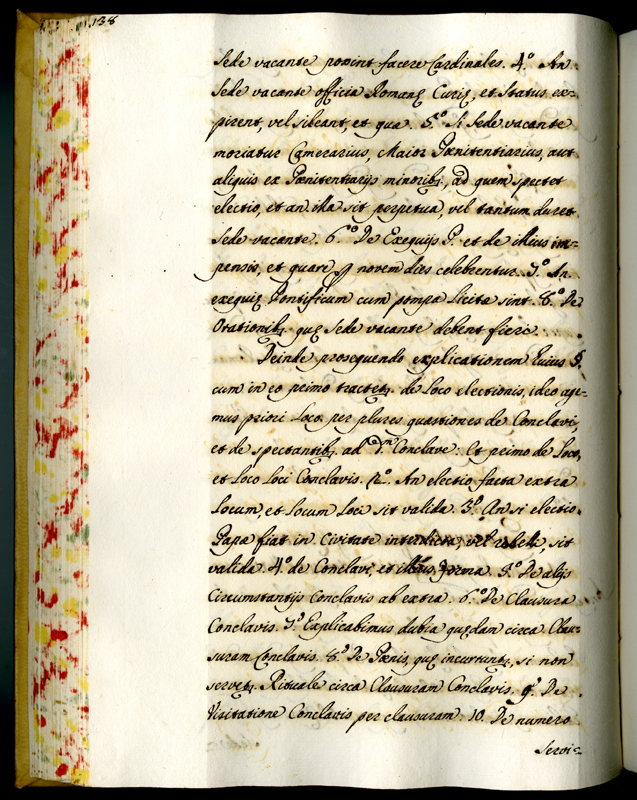 138
Sede vacante possint facere Cardinales. 4.º An
Sede vacante officia Romanę Curię, et Status ex-
pirent, vel sileant, et qua. 5.º Si Sede vacante
moriatur Camerarius, Maior Pœnitentiarius, aut
aliquis ex Pœnitentiarijs minoribs, ad quem spectet
electio, et an illa sit perpetua, vel tantum duret
Sede vacante. 6.º De Exequijs P. et de illius im-
pensis, et quare ꝑ novem dies celebrentur. 7.º An
exequię Pontificum cum pompa licitę sint. 8.º De
Orationibs. quę Sede vacante debent fieri.
Deinde prosequendo explicationem huius §.
cum in eo primo tractets. de Loco electionis, ideo age-
mus priori loco per plures quæstiones de Conclavi,
et de spectantibs. ad dm Conclave: Et primo de Loco,
et Loco Loci Conclavis. 2.º An electio facta extra
Locum, et Locum Loci sit valida. 3.º An si electio
Papæ fiat in Civitate interdicta, vel rebelli, sit
valida. 4.º de Conclavi, et illius forma. 5.º De alijs
Circumstantijs Conclavis ab extra. 6.º De Clausura
Conclavis. 7.º Explicabimus dubia quędam circa Clau-
suram Conclavis. 8.º De Pœnis, quę incurrunts, si non
servets. Rituale circa Clausuram Conclavis. 9.º De
Visitatione Conclavis per clausuram. 10. De numero
Servi-